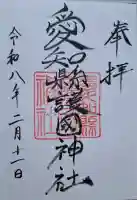 奉拝
愛知縣護國神社
令和八年二月十一日